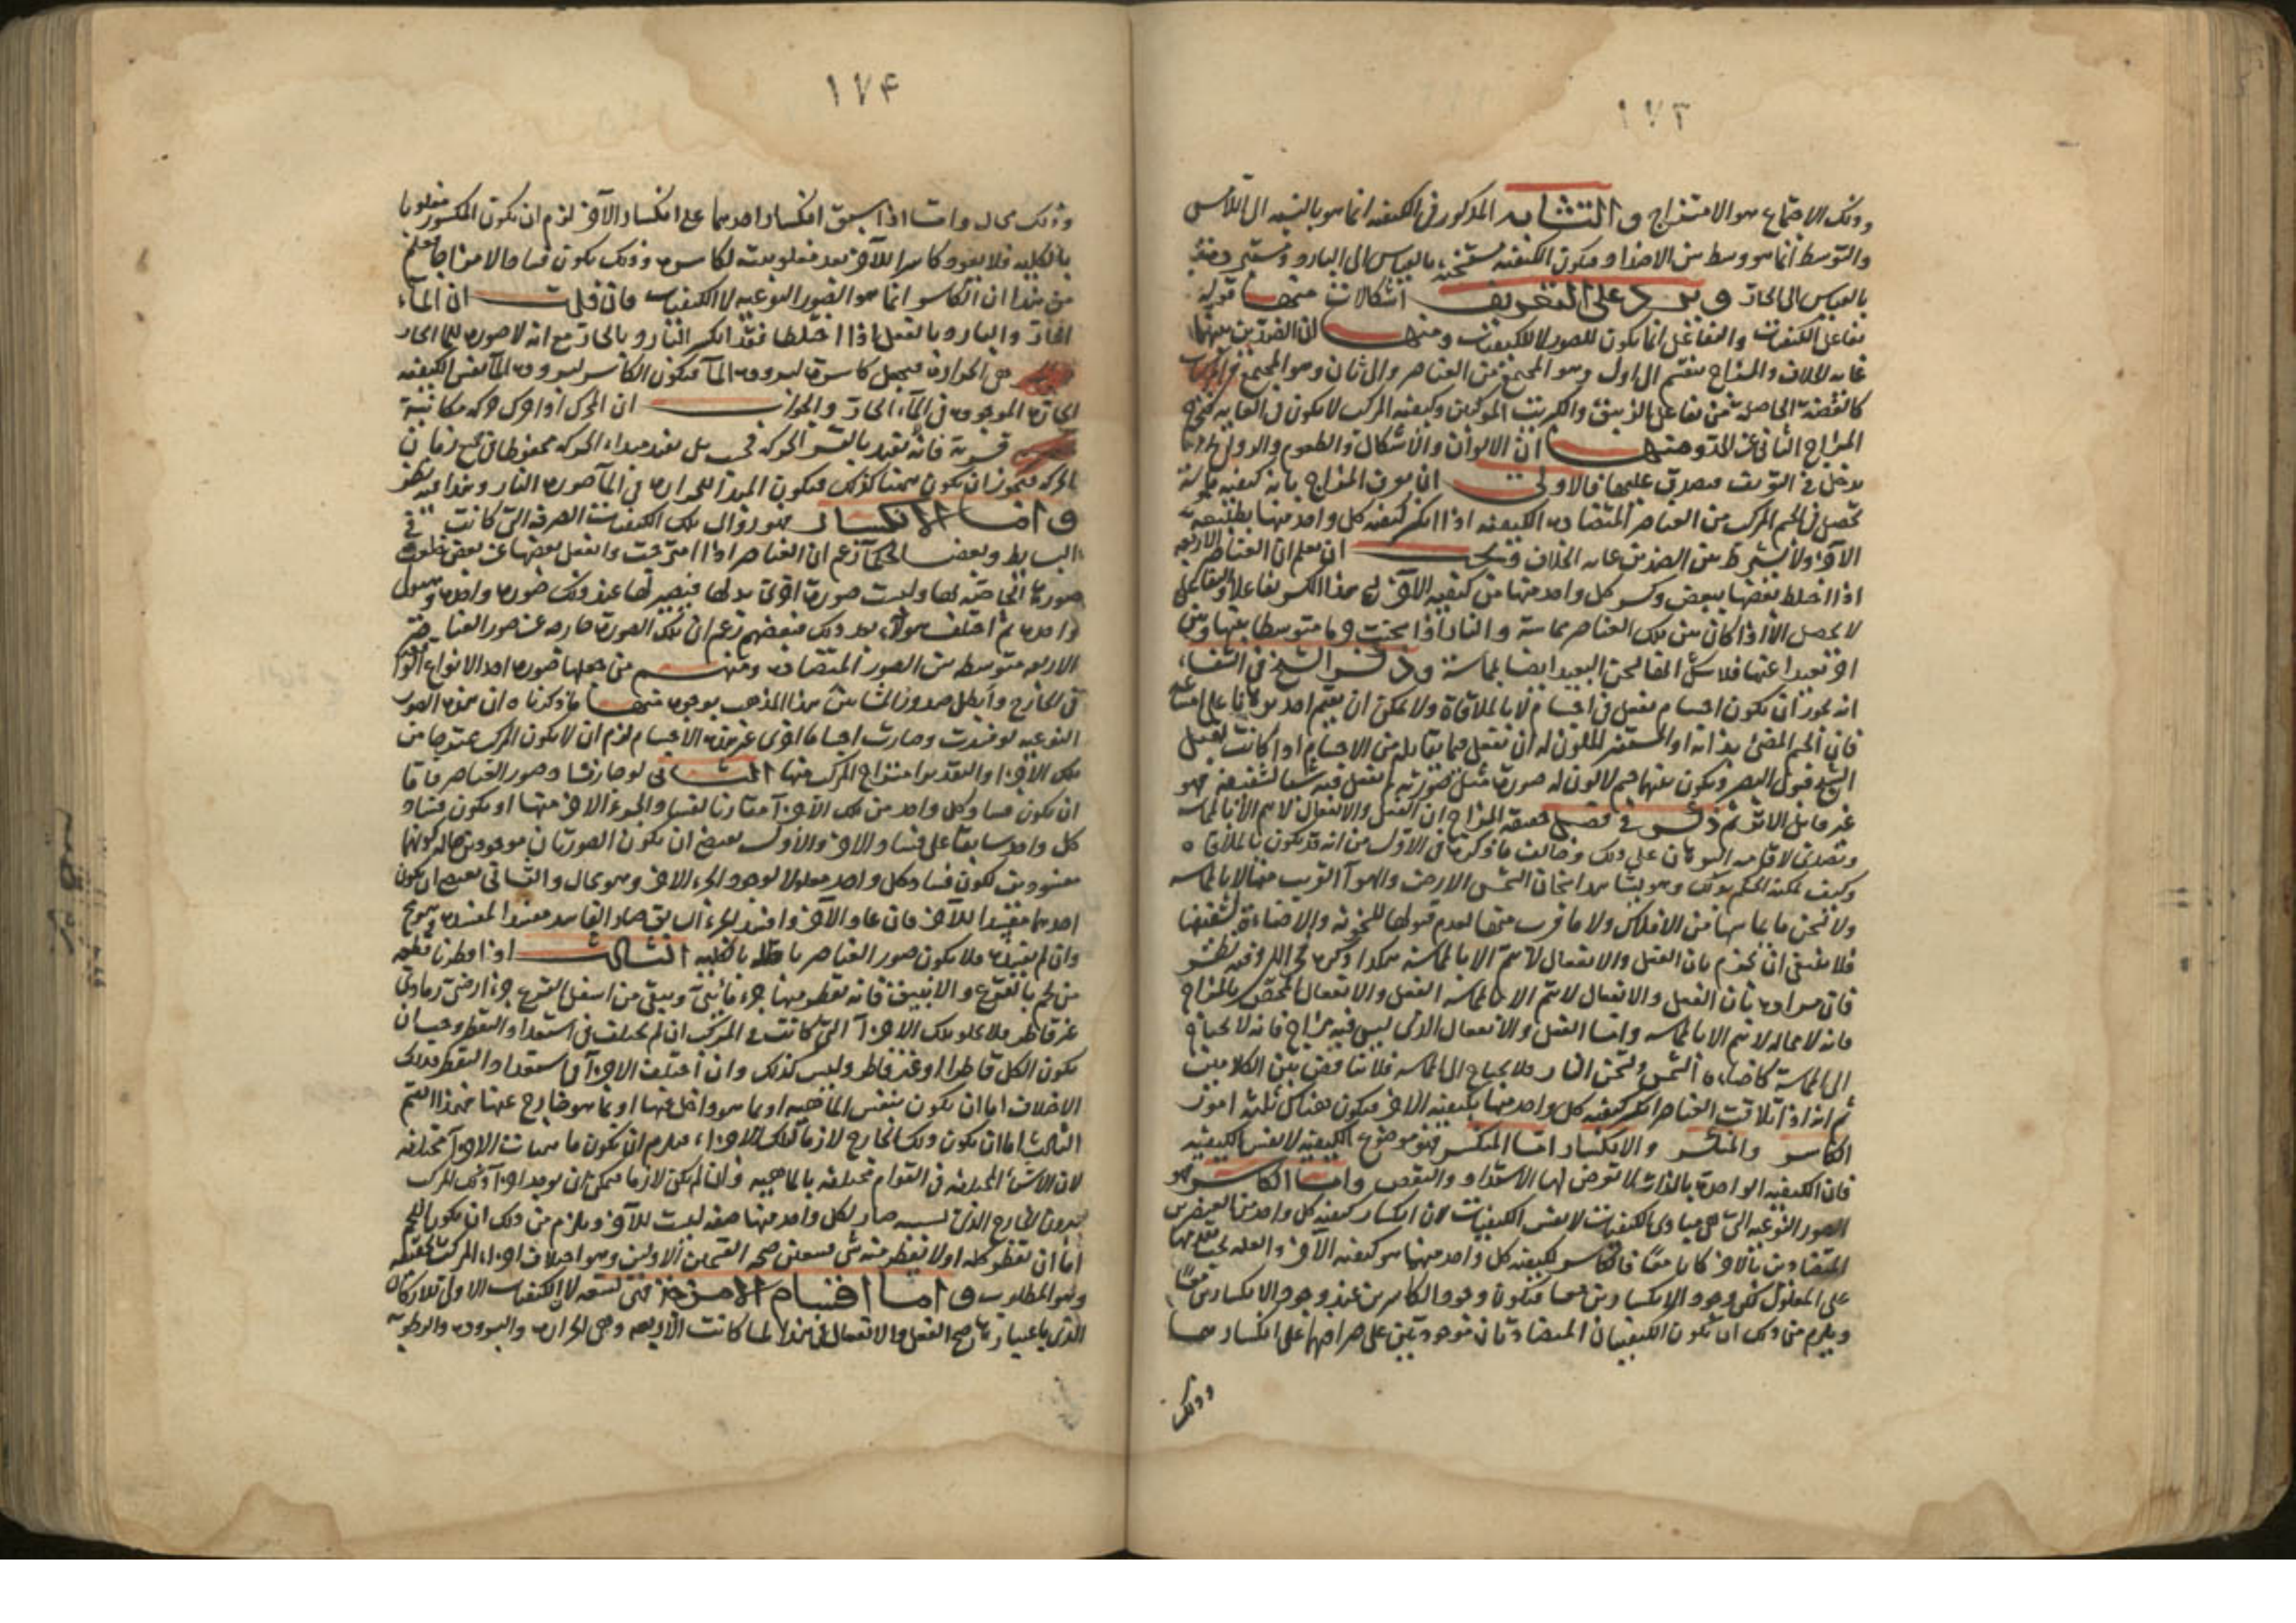 ١٧٣
وذلك الاجتماع هو الامتزاج والتشابه المذكور في الكيفيه انما هو بالنسبه الى اللامس
والتوسط انما هو وسط بين الاضداد فيكون الكيفيه بالقياس الى البارد
بالقياس الى الحار ويرد على التعريف اشكالات منها قوله
تفاعل الكيفيات والتفاعل انما يكون للصور لا للكيفيات ومنها ان الضدين بينهما
غايه الخلاف والمزاج ينقسم الى اول وهو المجتمع من العناصر والى ثان وهو المجتمع
الحاصله من تفاعل الزيبق والكبريت وكيفيه المركب لا يكون في الغايه فيخرج
المزاج الثاني عن الحد ومنها ان الالوان والاشكال والطعوم والروايح
يدخل في التعريف فالاولى ان يعرف المزاج بانه كيفيه ملموسة
تحصل في الجسم المركب من العناصر المتضاده الكيفيه اذا انكسر كيفيه كل واحد منها بطبيعه
الآخر ولا يشترط بين الضدين غايه الخلاف ان يعلم ان العناصر الاربعه
اذا اختلط بعضها ببعض وكسر كل واحد منها من كيفيه الآخر هذا الكسر تفاعلا والتفاعل
لا يحصل الا اذا كان بين تلك العناصر مماسة والنار اذا سخنت جسما متوسطا بينها وبين
آخر بعيدا عنها فلا شك انها تسخن البعيد ايضا بمماسة وذكر الشيخ في الشفاء
انه يجوز ان يكون اجسام تفعل في اجسام لا بالملاقاة ولا يمكن ان يقيم احد برهانا على امتناعه
فان الجسم المضئ بذاته او المستنير الملون له ان يفعل فيما يقابله من الاجسام اذا كانت تقبل
الشبح قبول البصر ويكون بينهما جسم لا لون له صورة مثل صورته ولم يفعل فيه شيئا لشفيفه فهو
غير قابل الاثر ثم ذكر في فصل حقيقه المزاج ان الفعل والانفعال لا يتم الا بالمماسه
وتصدى لاقامه البرهان على ذلك وخالف ما ذكره في الاول من انه قد يكون بالملاقاه
وكيف يمكنه الحكم بذلك وهو يشاهد اسخان الشمس الارض والهوآ القريب منها لا بالمماسه
ولا تسخن ما يماسها من الافلاك ولا ما قرب منها لعدم قبولها للسخونه والاضاءة لشفيفها
فلا ينبغي ان يجزم بان الفعل والانفعال لا يتم الا بالمماسة وفيه نظر
فان مراده بان الفعل والانفعال لا يتم الا بالمماسه الفعل والانفعال المختص بالمزاج
فانه لا محاله لا يتم الا بالمماسه واما الفعل والانفعال الذى ليس فيه مزاج فانه لا يحتاج
الى المماسة كاضاءه الشمس وتسخن النار فلا يحتاج الى المماسه فلا تناقض بين الكلامين
ثم انه اذا تلاقت العناصر انكسر كيفيه كل واحد منها بكيفيه الآخر فيكون هناك ثلثه امور
الكاسر والمنكسر والانكسار اما المنكسر فهو موضوع الكيفيه لا نفس الكيفيه
فان الكيفيه الواحدة بالذات لا تعرض لها الاشتداد والنقص واما الكاسر فهو
الصور النوعيه التى هي مبادى الكيفيات لا نفس الكيفيات لان انكسار كيفيه كل واحد من العنصرين
المتضادين بالآخر كانا معا فالكاسر لكيفيه كل واحد منهما هو كيفيه الآخر والعله تجب تقدمها
على المعلول يكون وجود الانكسارين معا فيكون وجود الكاسرين عند وجود الانكسارين معا
ويلزم من ذلك ان يكون الكيفيتان المتضادتان موجودتين على صرافتهما على انكسارهما
وذلك
١٧٤
وذلك محال واما اذا سبق انكسار احدهما على انكسار الآخر لزم ان يكون المكسور مغلوبا
بالكليه فلا يعود كاسرا للآخر بعد مغلوبيته لكاسره وذلك يكون فسادا لا امتزاجا فعلم
من هذا ان الكاسر انما هو الصور النوعيه لا الكيفيات فان قلت ان المآء
الحار والبارد بالفعل اذا اختلطا فقد انكسر البارد بالحار مع انه لا صوره للماء الحار
هى الحراره فيجعل كاسرة لبروده المآء فيكون الكاسر لبروده المآء نفس الكيفيه
الحارة الموجوده في المآء الحار والجواب ان المحرك اذا حرك حركه مكانية
قسرية فانه يفيد بالقسر الحركه فحسب بل يفيد مبداء الحركه محفوظا في جميع زمان
الحركه فيجوز ان يكون ههنا كذلك فيكون المبدأ للحراره في المآء صوره النار وهذا فيه نظر
واما الانكسار فهو زوال تلك الكيفيات الصرفه التى كانت في
البسايط وبعض الحكمآء زعم ان العناصر اذا امتزجت وانفعل بعضها عن بعض خلعت
صورتها الخاصه بها ولبست صورة اخرى بدلها فيصير لها عند ذلك صوره واحده وهيولى
واحده ثم اختلف هؤلاء بعد ذلك فبعضهم زعم ان تلك الصورة خارجه عن صور العناصر
الاربعه متوسطه بين الصور المتضاده ومنهم من جعلها صوره احد الانواع
في الخارج وابطل هذا المذهب بوجوه منها ما ذكرناه ان هذه الصور
النوعيه لو فسدت وصارت اجساما اخرى غير هذه الاجسام لزم ان لا يكون المركب ممتزجا من
تلك الاجزاء والتقدير امتزاج المركب منها الثانى لو جاز فساد صور العناصر فاما
ان يكون فساد كل واحد من تلك الاجزآء مقارنا لفساد الجزء الآخر منها او يكون فساد
كل واحد سابقا على فساد الآخر والاول يقتضى ان يكون الصورتان موجودتين حاله كونهما
مفسودتين لكون فساد كل واحد معلولا لوجود الجزء الآخر وهو محال والثانى يقتضى ان يكون
احدهما مفسدا للآخر فان عاد الآخر وافسد الجزء السابق صار الفاسد مفسدا لمفسده
وان لم يفسده فلا يكون صور العناصر باطله بالكليه الثالث اذا قطرنا قطعه
من لحم بالقرع والانبيق فانه تقطر منها جزء مائى ويبقى من اسفل القرع جزء ارضى رمادى
غير قاطر فلا يخلو تلك الاجزآء التى كانت في المركب ان لم يختلف في استعداد التقطر وجب ان
يكون الكل قاطرا او غير قاطر وليس كذلك وان اختلفت الاجزآء في استعداد التقطر فذلك
الاختلاف اما ان يكون بنفس الماهيه او بما هو داخل فيها او بما هو خارج عنها فهذا القسم
الثالث اما ان يكون ذلك الخارج لازما لتلك الاجزاء فيلزم ان يكون ماهيات الاجزآء مختلفه
لان الاشياء المختلفه في اللوازم مختلفه بالماهيه وان لم يكن لازما فيمكن ان يوجد اجزآء ذلك المركب
بدون الخارج الذى بسببه صار لكل واحد منها صفه ليست للآخر ويلزم من ذلك ان يكون اللحم
اما ان تقطر كله اولا يقطر منه شى فيتعين صحه القسمين الاولين وهو اختلاف اجزاء المركب بالحقيقه
وهو المطلوب واما اقسام الامزجه فهى تسعه لان الكيفيات الاولى للاركان
الذى باعتبارها صح الفعل والانفعال فى هذا لما كانت الاربعه وهى الحراره والبروده والرطوبه